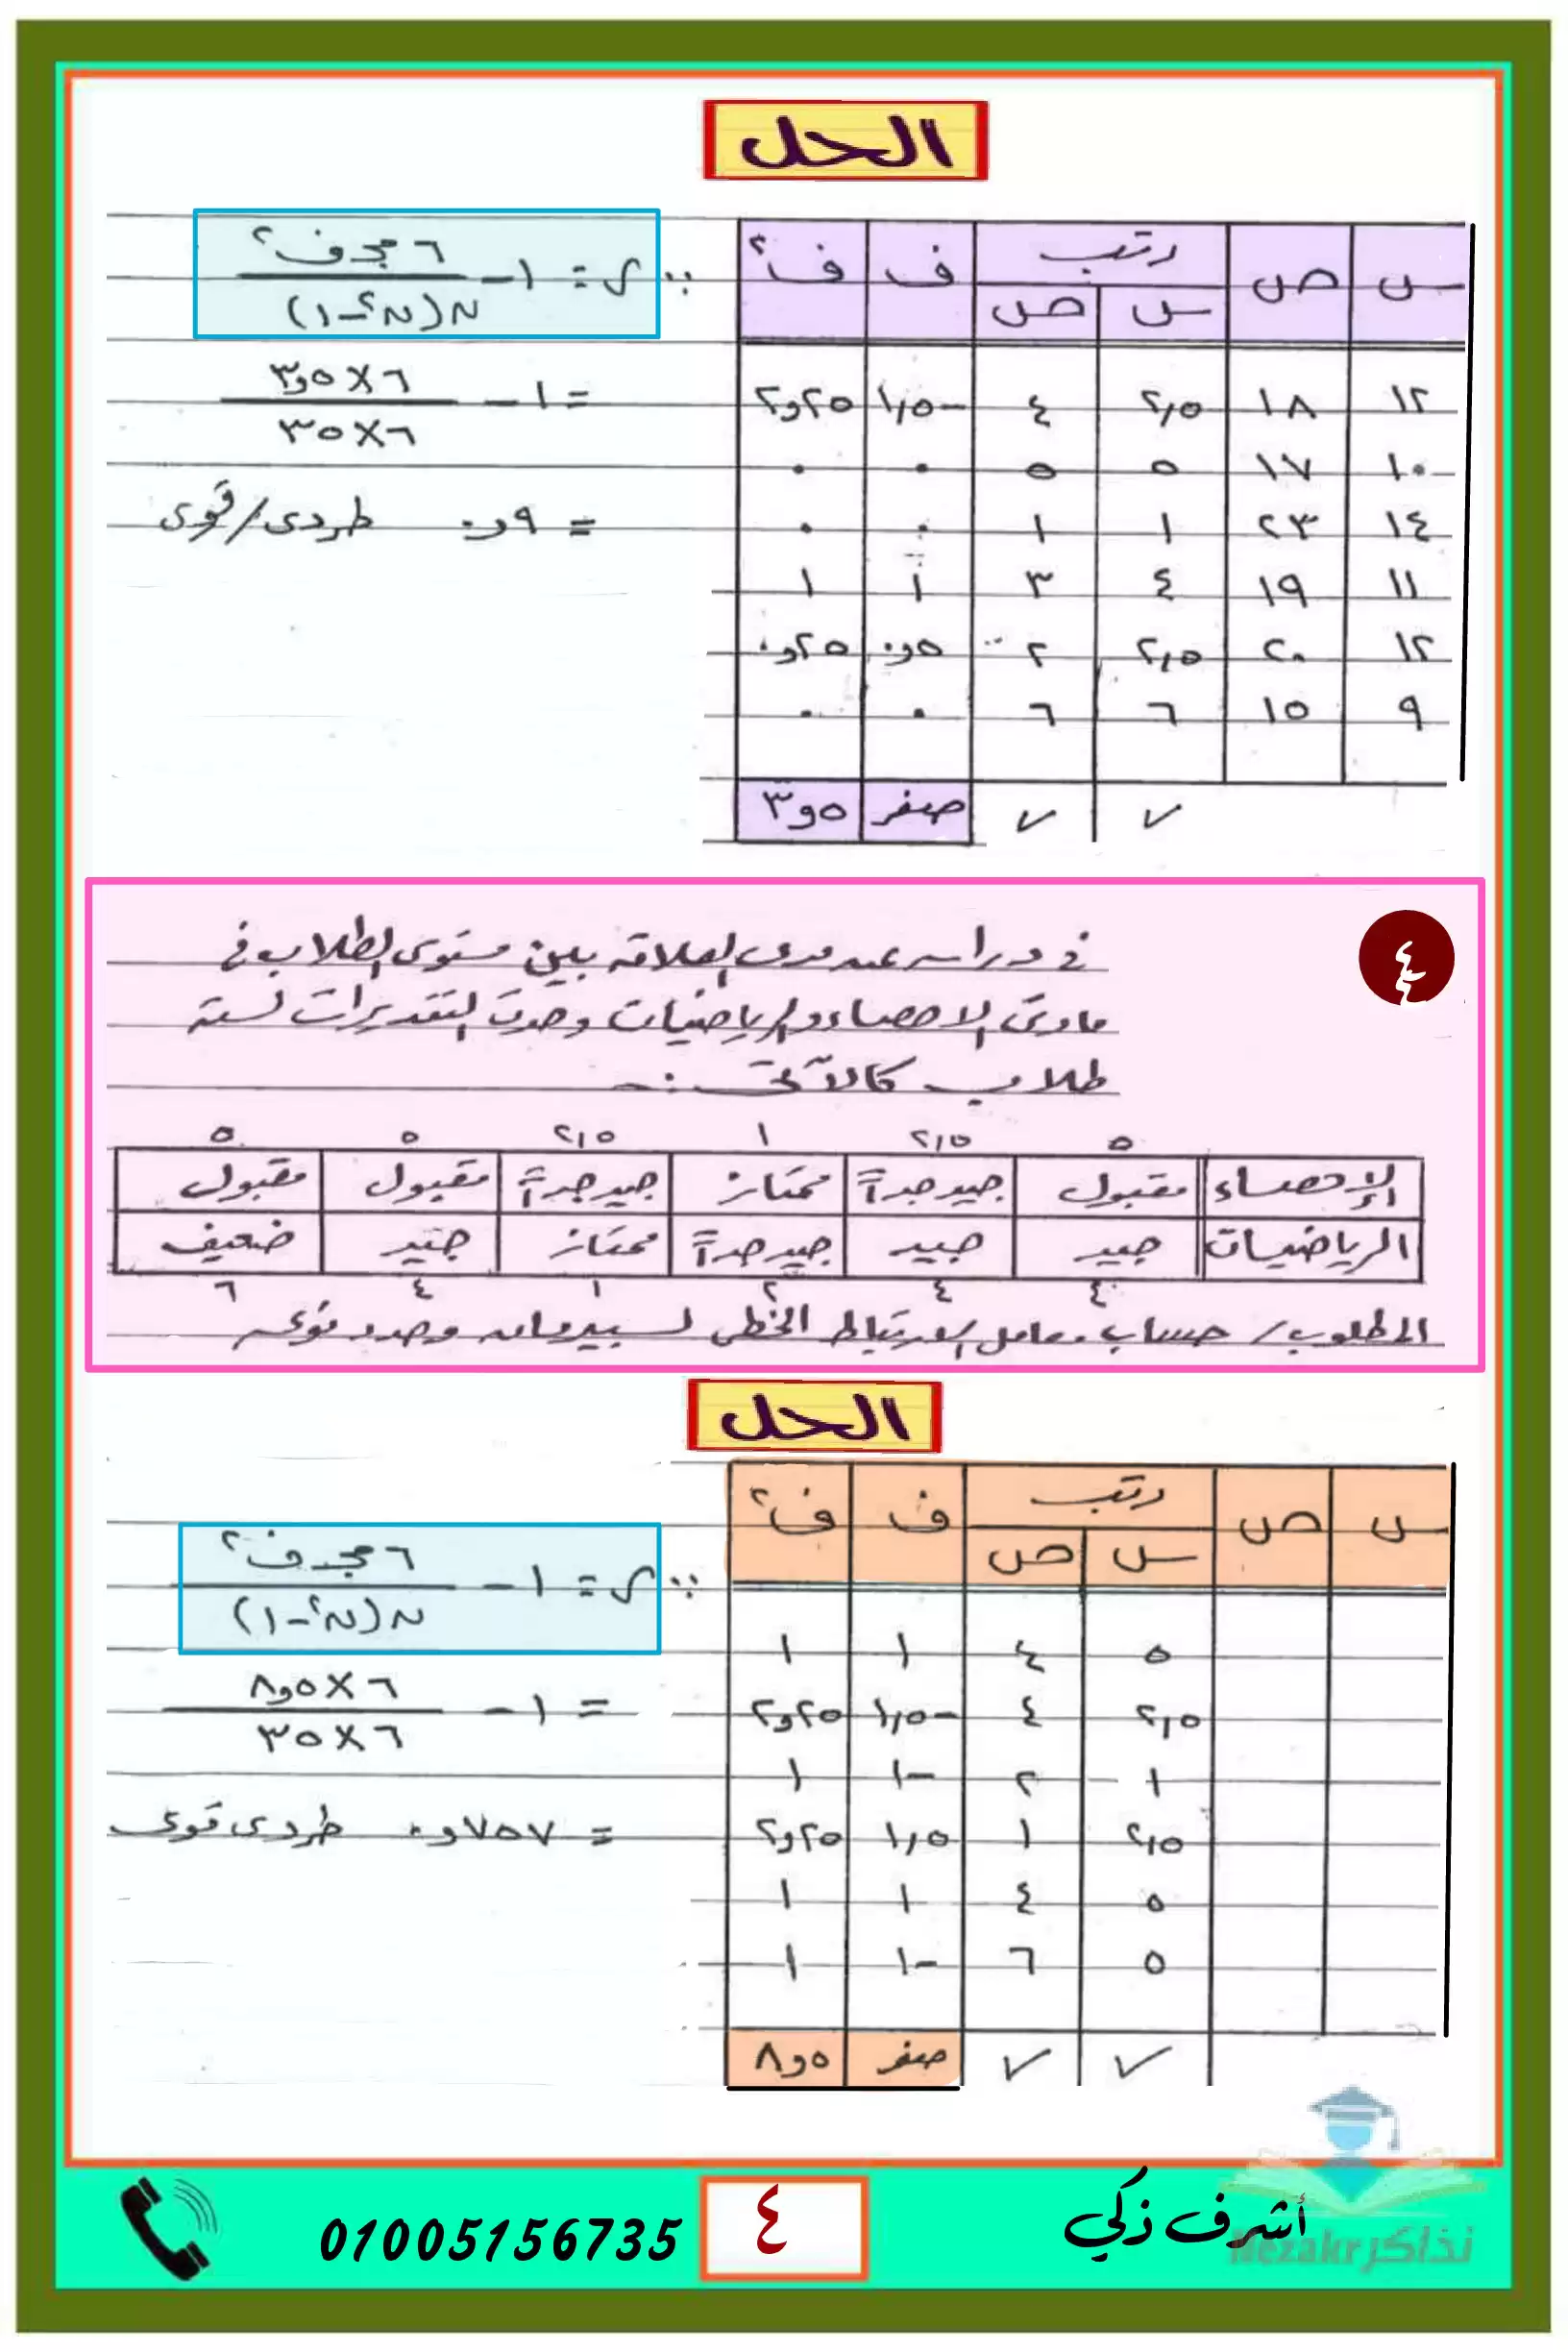 الحل
س | ص | رتب س | رتب ص | ف | ف²
١٢ | ١٨ | ٢,٥ | ٤ | -١,٥ | ٢,٢٥
١٠ | ١٧ | ٥ | ٥ | ٠ | ٠
١٤ | ٢٣ | ١ | ١ | ٠ | ٠
١١ | ١٩ | ٤ | ٣ | ١ | ١
١٢ | ٢٠ | ٢,٥ | ٢ | ٠,٥ | ٠,٢٥
٩ | ١٥ | ٦ | ٦ | ٠ | ٠
✓ | ✓ | صفر | ٣,٥
∵ ر = ١ - ٦ مجـ ف² / ن(ن² - ١)
= ١ - ٦ × ٣,٥ / ٦ × ٣٥
= ٠,٩ طردى / قوى
٤
في دراسه عن مدى العلاقه بين مستوى الطلاب في
مادتى الاحصاء والرياضيات وجدت التقديرات لستة
طلاب كالآتى :-
٥ | ٢,٥ | ١ | ٢,٥ | ٥ | ٥
الإحصاء | مقبول | جيد جداً | ممتاز | جيد جداً | مقبول | مقبول
الرياضيات | جيد | جيد | جيد جداً | ممتاز | جيد | ضعيف
٤ | ٤ | ٢ | ١ | ٤ | ٦
المطلوب / حساب معامل الارتباط الخطى لسبيرمان وحدد نوعه
الحل
س | ص | رتب س | رتب ص | ف | ف²
٥ | ٤ | ١ | ١
٢,٥ | ٤ | -١,٥ | ٢,٢٥
١ | ٢ | -١ | ١
٢,٥ | ١ | ١,٥ | ٢,٢٥
٥ | ٤ | ١ | ١
٥ | ٦ | -١ | ١
✓ | ✓ | صفر | ٨,٥
∵ ر = ١ - ٦ مجـ ف² / ن(ن² - ١)
= ١ - ٦ × ٨,٥ / ٦ × ٣٥
= ٠,٧٥٧ طردى قوى
أشرف زكي
٤
01005156735
نذاكر Nezakr